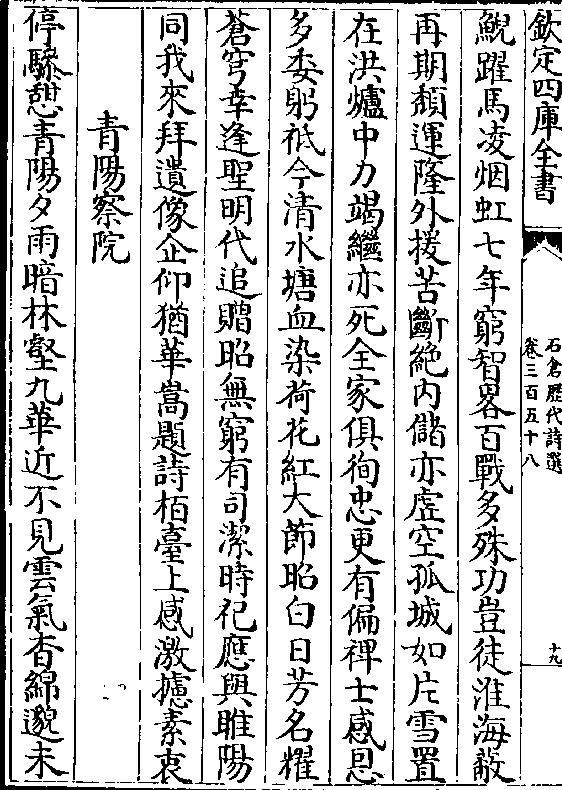 欽定四庫全書
石倉歷代詩選
卷三百五十八
十九
鯢躍馬凌烟虹七年窮智畧百戰多殊功豈徒淮海蔽
再期頽運隆外援苦斷絶内儲亦虚空孤城如片雪置
在洪爐中力竭繼亦死全家俱徇忠更有偏禆士感恩
多委躬祗今清水塘血染荷花紅大節昭白日芳名耀
蒼穹幸逢聖明代追贈昭無窮有司潔時祀應與睢陽
同我來拜遺像企仰猶華嵩題詩栢臺上感激攄素衷
青陽察院
停驂憇青陽夕雨暗林壑九華近不見雲氣杳綿邈未